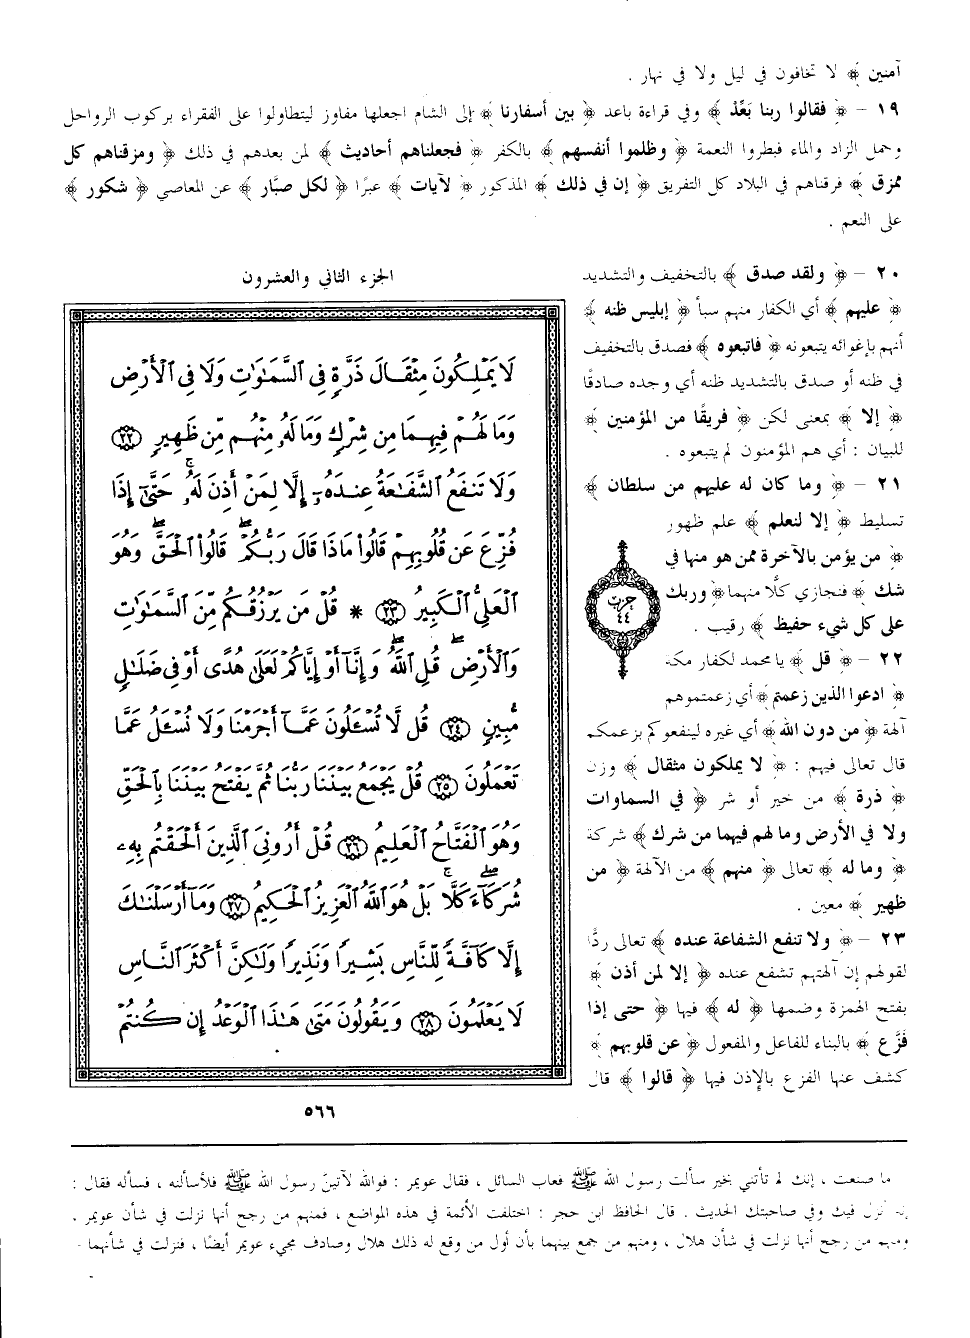 آمنين ﴾ لا تخافون في ليل ولا في نهار .
١٩ - ﴿ فقالوا ربنا بَعِّدْ ﴾ وفي قراءة باعد ﴿ بين أسفارنا ﴾ إلى الشام اجعلها مفاوز ليتطاولوا على الفقراء بركوب الرواحل
وحمل الزاد والماء فبطروا النعمة ﴿ وظلموا أنفسهم ﴾ بالكفر ﴿ فجعلناهم أحاديث ﴾ لمن بعدهم في ذلك ﴿ ومزقناهم كل
ممزق ﴾ فرقناهم في البلاد كل التفريق ﴿ إن في ذلك ﴾ المذكور ﴿ لآيات ﴾ عبرًا ﴿ لكل صبَّار ﴾ عن المعاصي ﴿ شكور ﴾
على النعم .
٢٠ - ﴿ ولقد صدق ﴾ بالتخفيف والتشديد
﴿ عليهم ﴾ أي الكفار منهم سبأ ﴿ إبليس ظنه ﴾
أنهم بإغوائه يتبعونه ﴿ فاتبعوه ﴾ فصدق بالتخفيف
في ظنه أو صدق بالتشديد ظنه أي وجده صادقًا
﴿ إلا ﴾ بمعنى لكن ﴿ فريقًا من المؤمنين ﴾
للبيان : أي هم المؤمنون لم يتبعوه .
٢١ - ﴿ وما كان له عليهم من سلطان ﴾
تسليط ﴿ إلا لنعلم ﴾ علم ظهور
﴿ من يؤمن بالآخرة ممن هو منها في
شك ﴾ فنجازي كلًا منهما ﴿ وربك
على كل شيء حفيظ ﴾ رقيب .
٢٢ - ﴿ قل ﴾ يا محمد لكفار مكة
﴿ ادعوا الذين زعمتم ﴾ أي زعمتموهم
آلهة ﴿ من دون الله ﴾ أي غيره لينفعوكم بزعمكم
قال تعالى فيهم : ﴿ لا يملكون مثقال ﴾ وزن
﴿ ذرة ﴾ من خير أو شر ﴿ في السماوات
ولا في الأرض وما لهم فيهما من شرك ﴾ شركة
﴿ وما له ﴾ تعالى ﴿ منهم ﴾ من الآلهة ﴿ من
ظهير ﴾ معين .
٢٣ - ﴿ ولا تنفع الشفاعة عنده ﴾ تعالى ردًّا
لقولهم إن آلهتهم تشفع عنده ﴿ إلا لمن أذن ﴾
بفتح الهمزة وضمها ﴿ له ﴾ فيها ﴿ حتى إذا
فُزِّع ﴾ بالبناء للفاعل والمفعول ﴿ عن قلوبهم ﴾
كشف عنها الفزع بالإذن فيها ﴿ قالوا ﴾ قال
حزب
٤٤
الجزء الثاني والعشرون
لَا يَمْلِكُونَ مِثْقَالَ ذَرَّةٍ فِى ٱلسَّمَٰوَٰتِ وَلَا فِى ٱلْأَرْضِ
وَمَا لَهُمْ فِيهِمَا مِن شِرْكٍ وَمَا لَهُۥ مِنْهُم مِّن ظَهِيرٍ ٢٢
وَلَا تَنفَعُ ٱلشَّفَٰعَةُ عِندَهُۥٓ إِلَّا لِمَنْ أَذِنَ لَهُۥ حَتَّىٰٓ إِذَا
فُزِّعَ عَن قُلُوبِهِمْ قَالُوا۟ مَاذَا قَالَ رَبُّكُمْ ۖ قَالُوا۟ ٱلْحَقَّ ۖ وَهُوَ
ٱلْعَلِىُّ ٱلْكَبِيرُ ٢٣ * قُلْ مَن يَرْزُقُكُم مِّنَ ٱلسَّمَٰوَٰتِ
وَٱلْأَرْضِ ۖ قُلِ ٱللَّهُ ۖ وَإِنَّآ أَوْ إِيَّاكُمْ لَعَلَىٰ هُدًى أَوْ فِى ضَلَٰلٍ
مُّبِينٍ ٢٤ قُل لَّا تُسْـَٔلُونَ عَمَّآ أَجْرَمْنَا وَلَا نُسْـَٔلُ عَمَّا
تَعْمَلُونَ ٢٥ قُلْ يَجْمَعُ بَيْنَنَا رَبُّنَا ثُمَّ يَفْتَحُ بَيْنَنَا بِٱلْحَقِّ
وَهُوَ ٱلْفَتَّاحُ ٱلْعَلِيمُ ٢٦ قُلْ أَرُونِىَ ٱلَّذِينَ أَلْحَقْتُم بِهِۦ
شُرَكَآءَ ۖ كَلَّا ۚ بَلْ هُوَ ٱللَّهُ ٱلْعَزِيزُ ٱلْحَكِيمُ ٢٧ وَمَآ أَرْسَلْنَٰكَ
إِلَّا كَآفَّةً لِّلنَّاسِ بَشِيرًا وَنَذِيرًا وَلَٰكِنَّ أَكْثَرَ ٱلنَّاسِ
لَا يَعْلَمُونَ ٢٨ وَيَقُولُونَ مَتَىٰ هَٰذَا ٱلْوَعْدُ إِن كُنتُمْ
٥٦٦
ما صنعت ، إنك لم تأتني بخير سألت رسول الله ﷺ فعاب السائل ، فقال عويمر : فوالله لآتينَّ رسول الله ﷺ فلأسألنه ، فسأله فقال :
إنه نزل فيك وفي صاحبتك الحديث . قال الحافظ ابن حجر : اختلفت الأئمة في هذه المواضع ، فمنهم من رجح أنها نزلت في شأن عويمر ،
ومنهم من رجح أنها نزلت في شأن هلال ، ومنهم من جمع بينهما بأن أول من وقع له ذلك هلال وصادف مجيء عويمر أيضًا ، فنزلت في شأنهما -